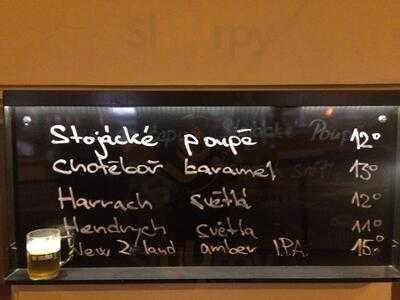 Stojácké poupě 12°
Chotěbař karamel 13°
Harrach světlá 12°
Hendrych světla 11°
New Zealand amber I.P.A. 15°